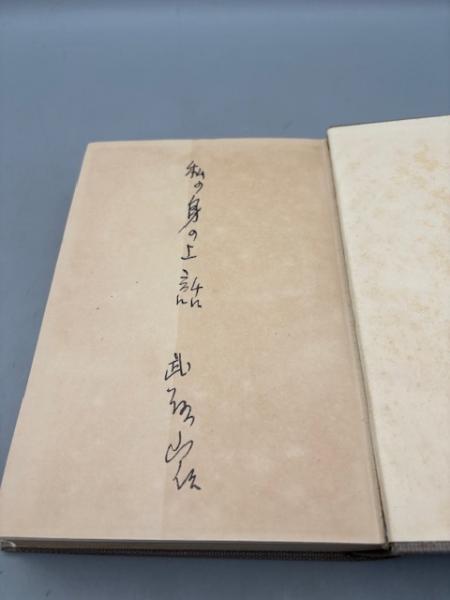 私の身の上話
武藤山治